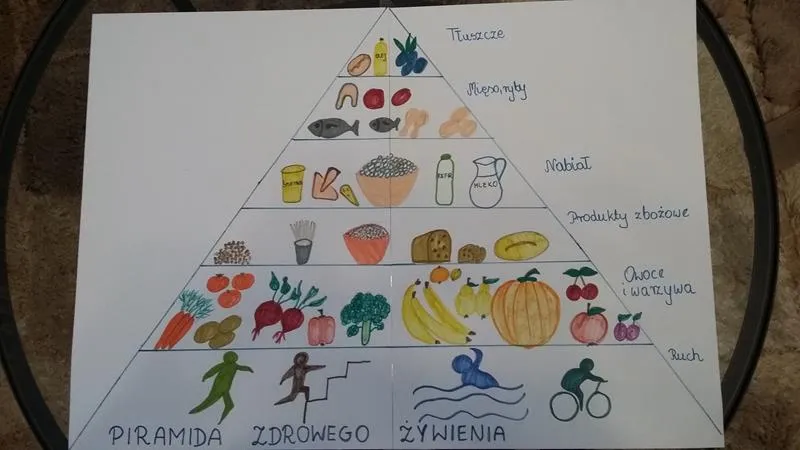 Tłuszcze
OLEJ
Mięso, ryby
Nabiał
KEFIR
MLEKO
Produkty zbożowe
Owoce
i warzywa
Ruch
PIRAMIDA ZDROWEGO ŻYWIENIA